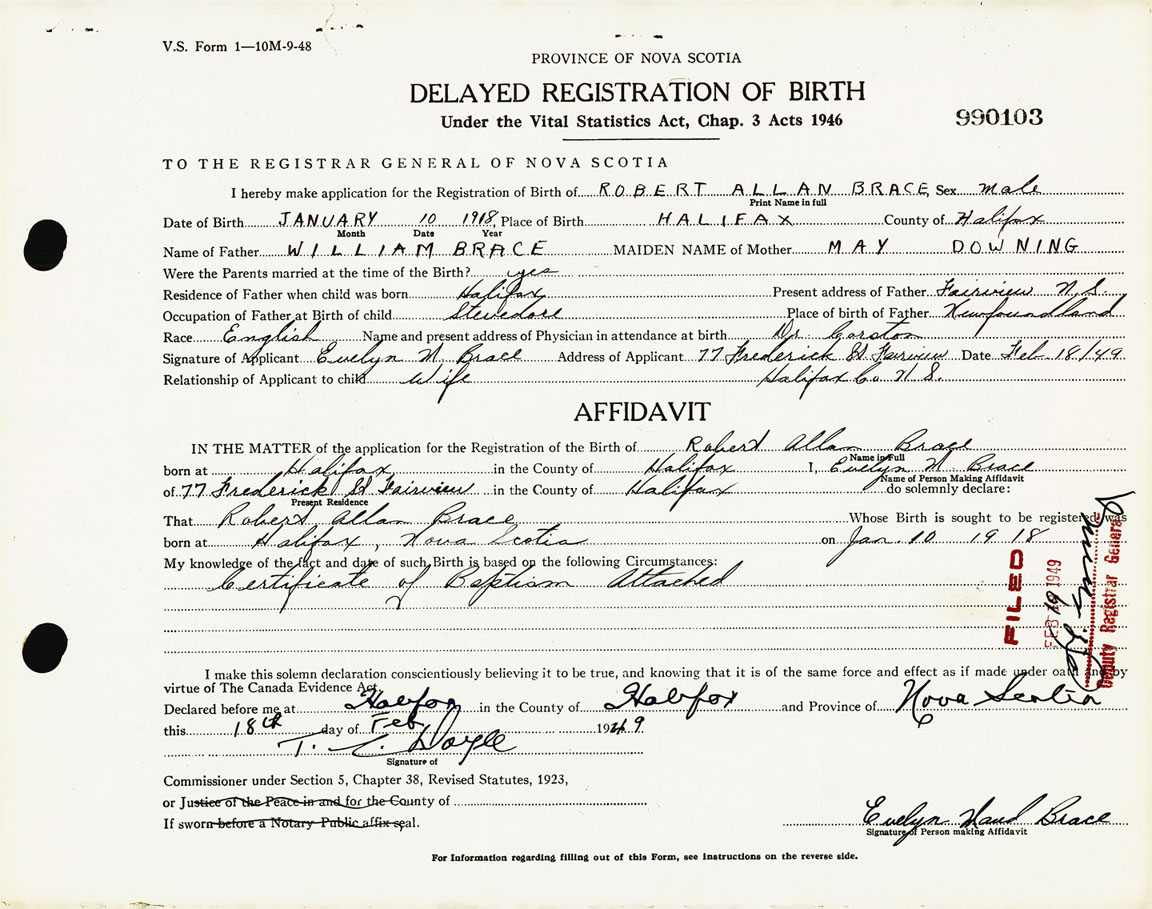 V.S. Form 1—10M-9-48
PROVINCE OF NOVA SCOTIA
DELAYED REGISTRATION OF BIRTH
Under the Vital Statistics Act, Chap. 3 Acts 1946
990103
TO THE REGISTRAR GENERAL OF NOVA SCOTIA
I hereby make application for the Registration of Birth of ROBERT ALLAN BRACE, Sex male
Print Name in full
Date of Birth JANUARY 10 1918, Place of Birth HALIFAX County of Halifax
Month Date Year
Name of Father WILLIAM BRACE MAIDEN NAME of Mother MAY DOWNING
Were the Parents married at the time of the Birth? yes
Residence of Father when child was born Halifax Present address of Father Fairview N.S.
Occupation of Father at Birth of child Stevedore Place of birth of Father Newfoundland
Race English Name and present address of Physician in attendance at birth Dr. Corston
Signature of Applicant Evelyn M. Brace Address of Applicant 77 Frederick St Fairview Date Feb 18/49
Relationship of Applicant to child Wife Halifax Co. N.S.
AFFIDAVIT
IN THE MATTER of the application for the Registration of the Birth of Robert Allan Brace
Name in Full
born at Halifax in the County of Halifax I, Evelyn M. Brace
Name of Person Making Affidavit
of 77 Frederick St Fairview in the County of Halifax do solemnly declare:
Present Residence
That Robert Allan Brace Whose Birth is sought to be registered was
born at Halifax, Nova Scotia on Jan. 10 1918
My knowledge of the fact and date of such Birth is based on the following Circumstances:
Certificate of Baptism Attached
FILED
FEB 19 1949
Deputy Registrar General
I make this solemn declaration conscientiously believing it to be true, and knowing that it is of the same force and effect as if made under oath and by
virtue of The Canada Evidence Act.
Declared before me at Halifax in the County of Halifax and Province of Nova Scotia
this 18th day of Feb 1949
T. C. Doyle
Signature of
Commissioner under Section 5, Chapter 38, Revised Statutes, 1923,
or Justice of the Peace in and for the County of
If sworn before a Notary Public affix seal.
Evelyn Maud Brace
Signature of Person making Affidavit
For Information regarding filling out of this Form, see instructions on the reverse side.